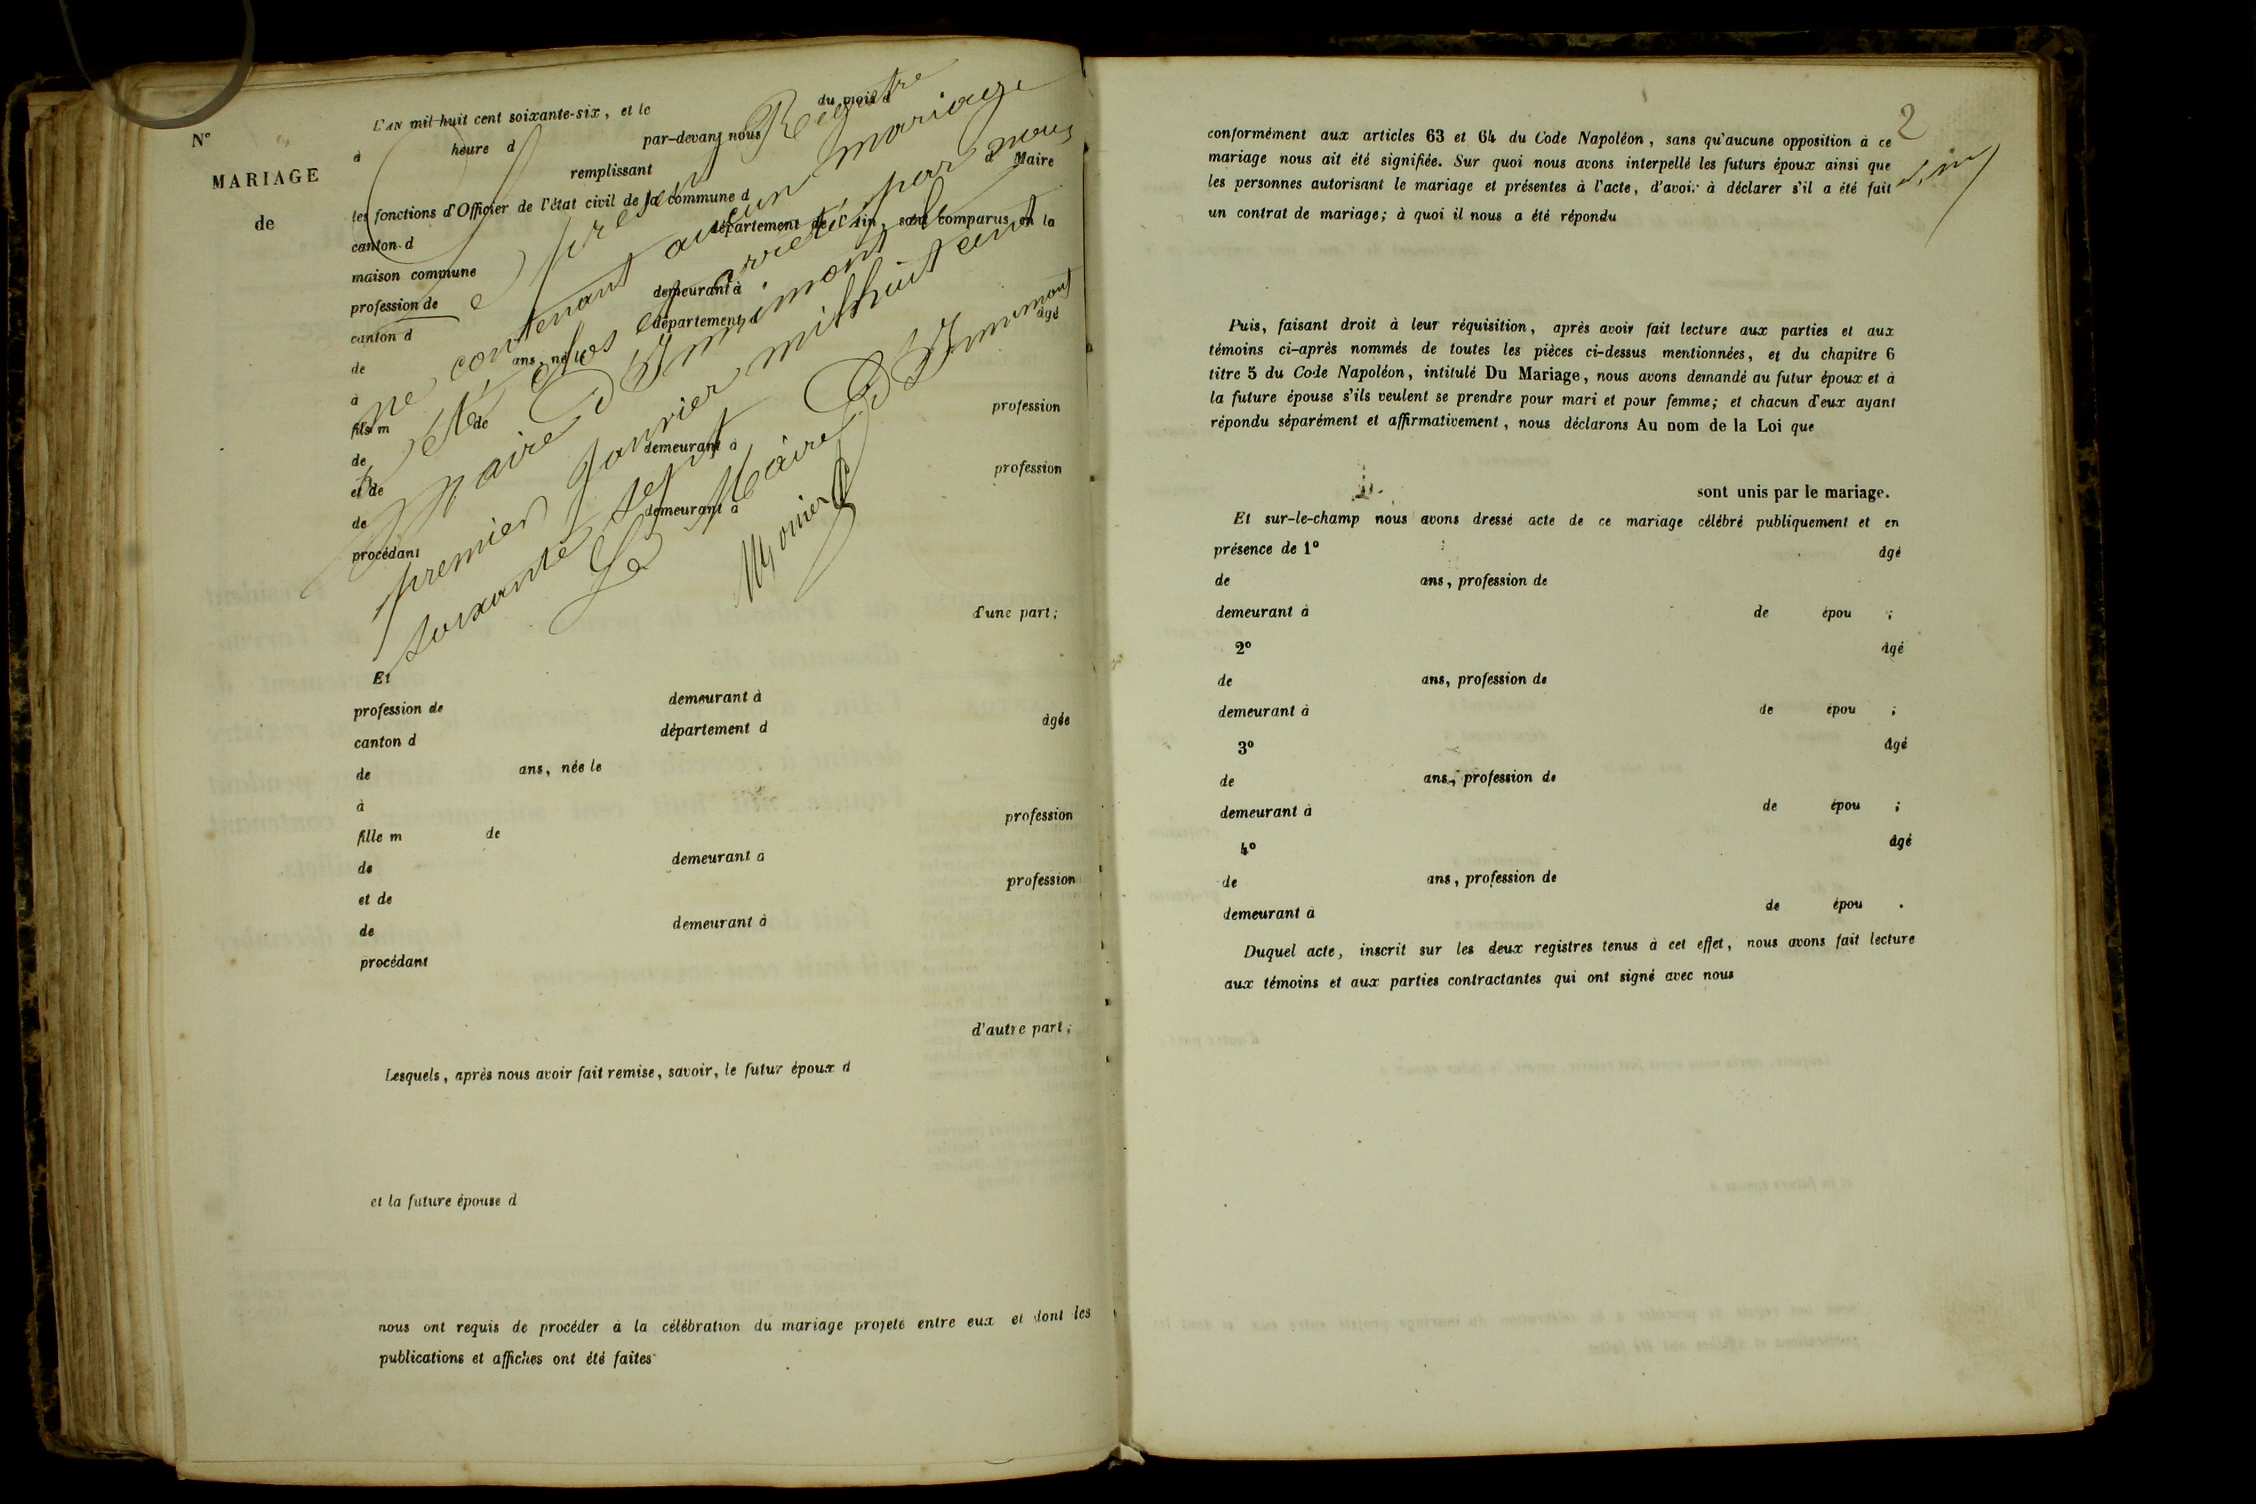 L'AN mil huit cent soixante-six, et le du mois d
N°
à heure d par-devant nous
MARIAGE
remplissant d Maire
de
les fonctions d'Officier de l'état civil de la commune d
canton d département de l'Ain, sont comparus en la
maison commune
profession de demeurant à
canton d département d âgé
de ans, né le
à
fils m de profession
de demeurant à
et de profession
de demeurant à
procédant
d'une part;
Le présent Registre
ne contenant aucun mariage
a été clos et arreté par nous
maire d'Immimont le
premier Janvier mil huit cent
soixante sept
Le Maire d'Immimont
Et
profession de demeurant à
canton d département d âgée
de ans, née le
à
fille m de profession
de demeurant à
et de profession
de demeurant à
procédant
d'autre part;
Lesquels, après nous avoir fait remise, savoir, le futur époux d
et la future épouse d
nous ont requis de procéder à la célébration du mariage projeté entre eux et dont les
publications et affiches ont été faites
2
conformément aux articles 63 et 64 du Code Napoléon, sans qu'aucune opposition à ce
mariage nous ait été signifiée. Sur quoi nous avons interpellé les futurs époux ainsi que
les personnes autorisant le mariage et présentes à l'acte, d'avoir à déclarer s'il a été fait
un contrat de mariage; à quoi il nous a été répondu
Puis, faisant droit à leur réquisition, après avoir fait lecture aux parties et aux
témoins ci-après nommés de toutes les pièces ci-dessus mentionnées, et du chapitre 6
titre 5 du Code Napoléon, intitulé Du Mariage, nous avons demandé au futur époux et à
la future épouse s'ils veulent se prendre pour mari et pour femme; et chacun d'eux ayant
répondu séparément et affirmativement, nous déclarons Au nom de la Loi que
sont unis par le mariage.
Et sur-le-champ nous avons dressé acte de ce mariage célébré publiquement et en
présence de 1° âgé
de ans, profession de
demeurant à de épou ;
2° âgé
de ans, profession de
demeurant à de épou ;
3° âgé
de ans, profession de
demeurant à de épou ;
4° âgé
de ans, profession de
demeurant à de épou .
Duquel acte, inscrit sur les deux registres tenus à cet effet, nous avons fait lecture
aux témoins et aux parties contractantes qui ont signé avec nous